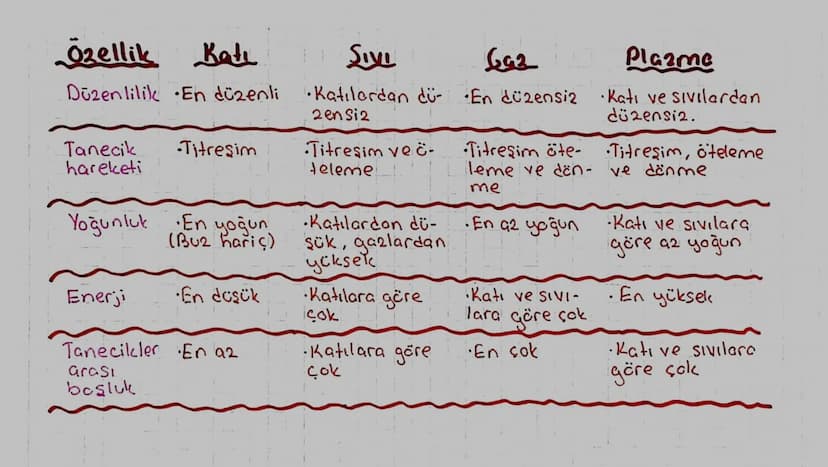 Özellik Katı Sıvı Gaz Plazma
Düzenlilik •En düzenli •Katılardan dü- •En düzensiz •Katı ve sıvılardan
zensiz düzensiz.
Tanecik •Titreşim •Titreşim ve ö- •Titreşim öte- •Titreşim, öteleme
hareketi teleme leme ve dön- ve dönme
me
Yoğunluk •En yoğun •Katılardan dü- •En az yoğun •Katı ve sıvılara
(Buz hariç) şük, gazlardan göre az yoğun
yüksek
Enerji •En düşük •Katılara göre •Katı ve sıvı- •En yüksek
çok lara göre çok
Tanecikler •En az •Katılara göre •En çok •Katı ve sıvılara
arası çok göre çok
boşluk